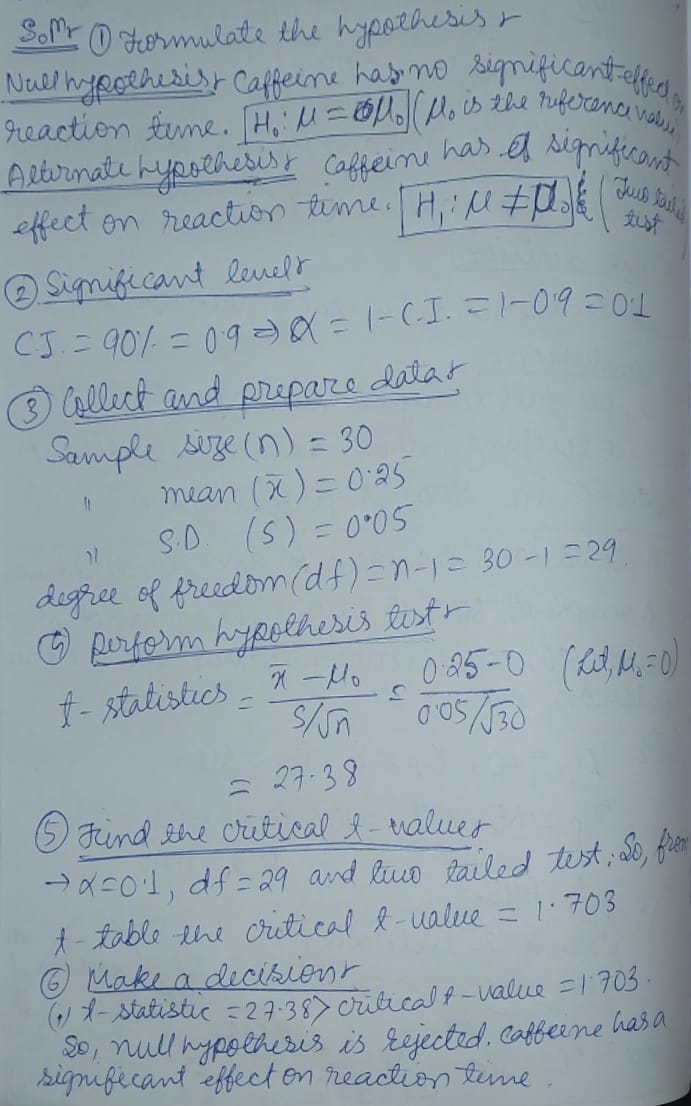 Solⁿ:- ① Formulate the hypothesis :-
Null hypothesis :- Caffeine has no significant effect on
reaction time. H₀ : μ = μ₀ (μ₀ is the reference value)
Alternate hypothesis :- Caffeine has a significant
effect on reaction time. H₁ : μ ≠ μ₀ (Two tailed
test
② Significant level :-
C.I. = 90% = 0.9 ⇒ α = 1 - C.I. = 1 - 0.9 = 0.1
③ Collect and prepare data :-
Sample size (n) = 30
" mean (x̄) = 0.25
" S.D. (S) = 0.05
degree of freedom (df) = n-1 = 30-1 = 29.
④ Perform hypothesis test :-
t - statistics = x̄ - μ₀ / S/√n = 0.25 - 0 / 0.05/√30 (Let, μ₀ = 0)
= 27.38
⑤ Find the critical t-value :-
→ α = 0.1, df = 29 and two tailed test; So, from
t - table the critical t-value = 1.703
⑥ Make a decision :-
(•) t-statistic = 27.38 > critical t-value = 1.703.
So, null hypothesis is rejected. Caffeine has a
significant effect on reaction time.